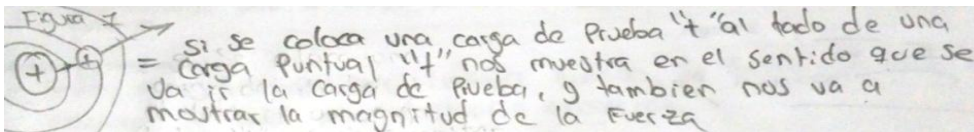 Figura 7
si se coloca una carga de Prueba "+" al lado de una
= carga Puntual "+" nos muestra en el sentido que se
va ir la carga de Prueba, y tambien nos va a
mostrar la magnitud de la Fuerza
+ +